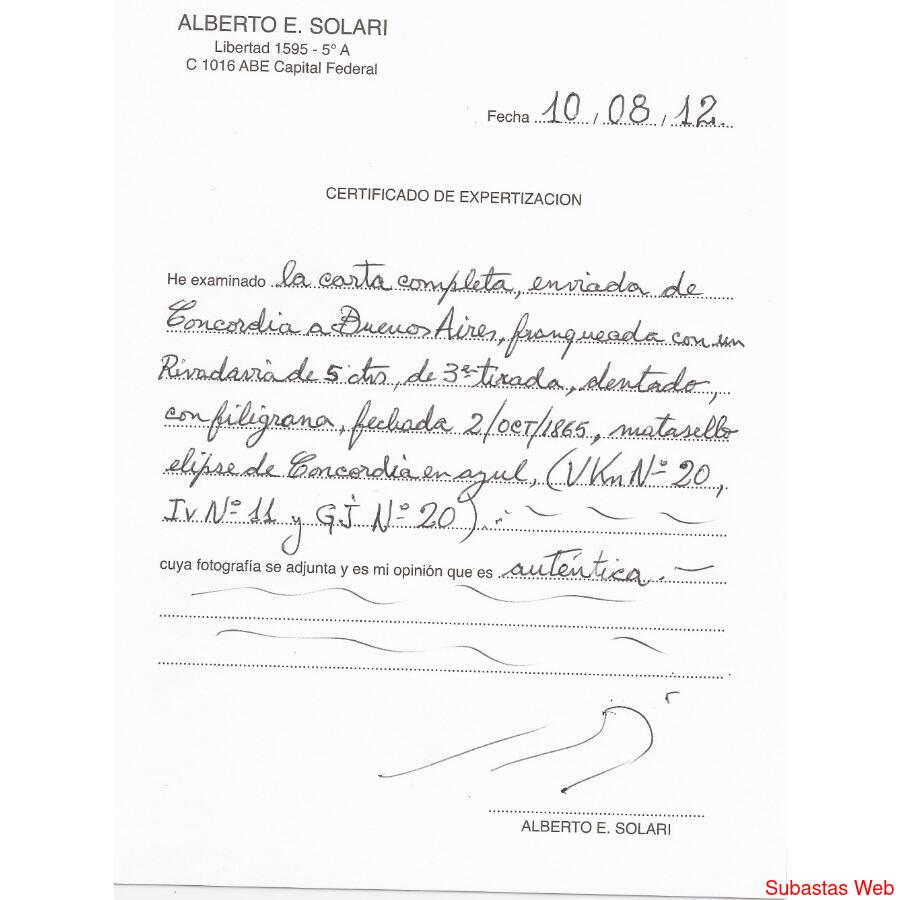 ALBERTO E. SOLARI
Libertad 1595 - 5° A
C 1016 ABE Capital Federal
Fecha 10 / 08 / 12.
CERTIFICADO DE EXPERTIZACION
He examinado la carta completa, enviada de
Concordia a Buenos Aires, franqueada con un
Rivadavia de 5 ctvs, de 3ª tirada, dentado,
con filigrana, fechada 2/OCT/1865, matasello
elipse de Concordia en azul, (VKn Nº 20,
Iv Nº 11 y GJ Nº 20).
cuya fotografía se adjunta y es mi opinión que es auténtica.
ALBERTO E. SOLARI
Subastas Web